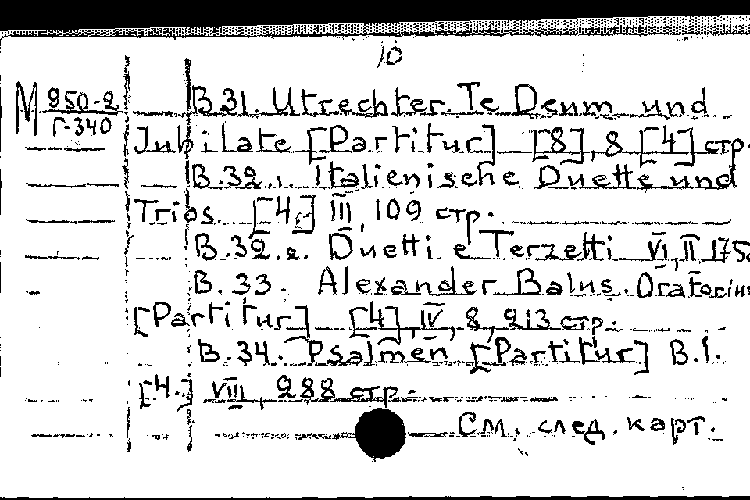 10
М 950-2
Г-340
B.31. Utrechter Te Deum und
Jubilate [Partitur] [8], 8 [4] стр.
B.32.1. Italienische Duette und
Trios. [4.] III, 109 стр.
B.32.2. Duetti e Terzetti VI, II 175
B.33. Alexander Balus. Oratorium
[Partitur] [4], IV, 8, 213 стр.
B.34. Psalmen [Partitur] B.1.
[4.] VIII, 288 стр.
См. след. карт.